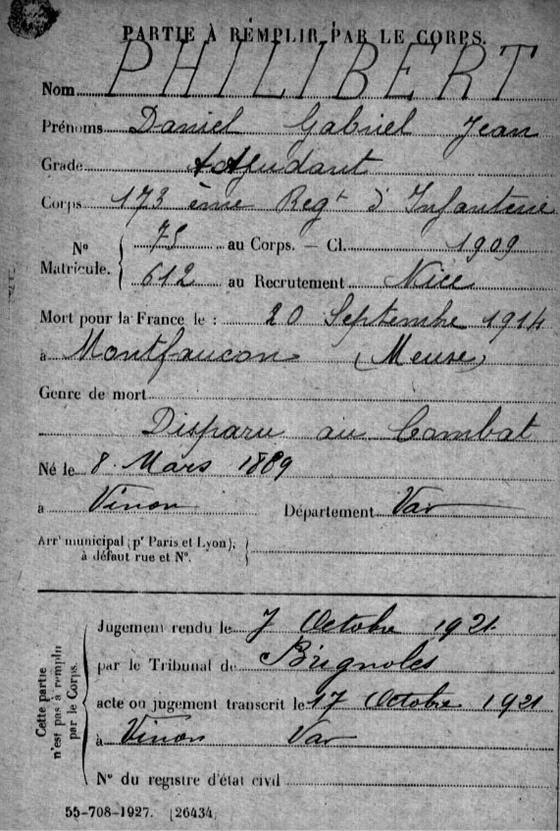 PARTIE À REMPLIR PAR LE CORPS.
Nom PHILIBERT
Prénoms Daniel Gabriel Jean
Grade Adjudant
Corps 173 ème Regt d'Infanterie
N° Matricule. { 75 au Corps. — Cl. 1909
612 au Recrutement Nice
Mort pour la France le : 20 Septembre 1914
à Montfaucon (Meuse)
Genre de mort
Disparu au Combat
Né le 8 Mars 1889
à Vinon Département Var
Arrt municipal (pr Paris et Lyon), à défaut rue et N°. }
Cette partie n'est pas à remplir par le Corps.
Jugement rendu le 7 Octobre 1921
par le Tribunal de Brignoles
acte ou jugement transcrit le 17 Octobre 1921
à Vinon Var
N° du registre d'état civil
55-708-1927. [26434]